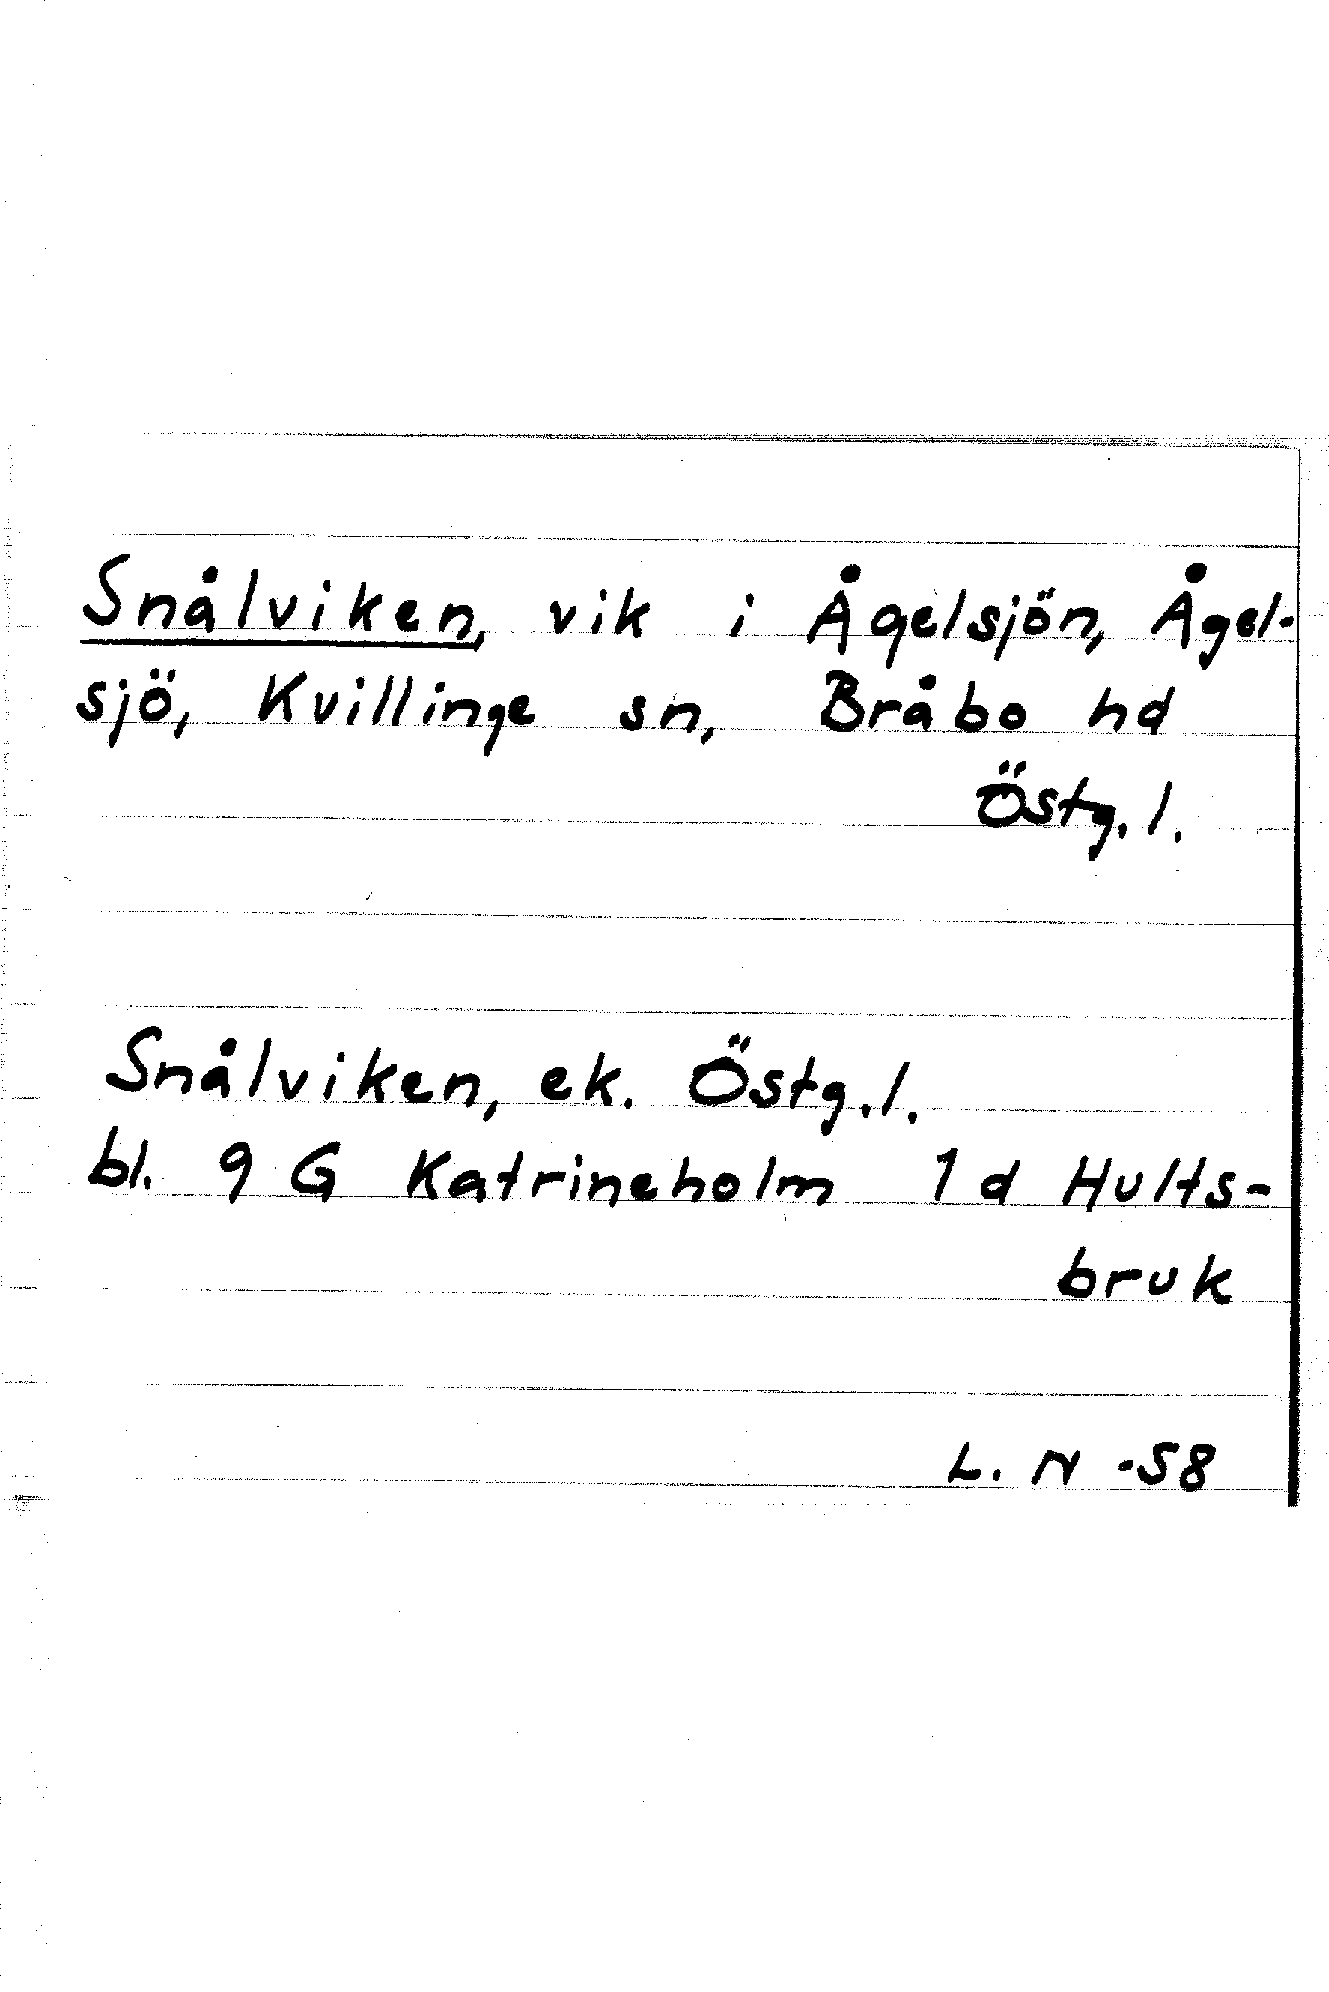 Snålviken, vik i Ågelsjön, Ågel-
sjö, Kvillinge sn, Bråbo hd
Östg. l.
Snålviken, ek. Östg. l.
bl. 9 G Katrineholm 1 d Hults-
bruk
L. N -58